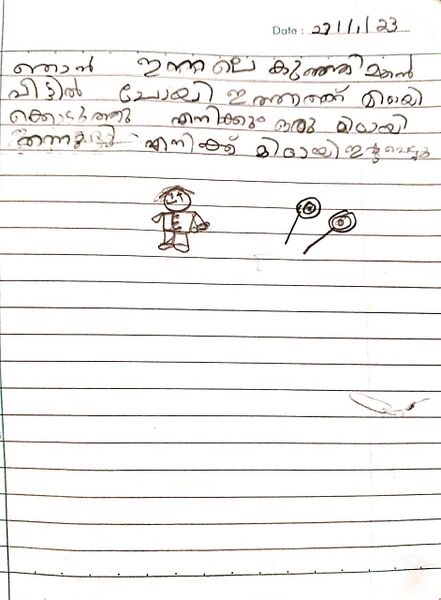 Date: 27/1/23
ഞാൻ ഇന്നലെ കുഞ്ഞിമ്മന്റെ
വീട്ടിൽ പോയി ഇത്താത്ത് മിഠായി
കൊടുത്തു എനിക്കും ഒരു മിഠായി
എനിക്ക് മിഠായി ഇഷ്ടപ്പെട്ടു